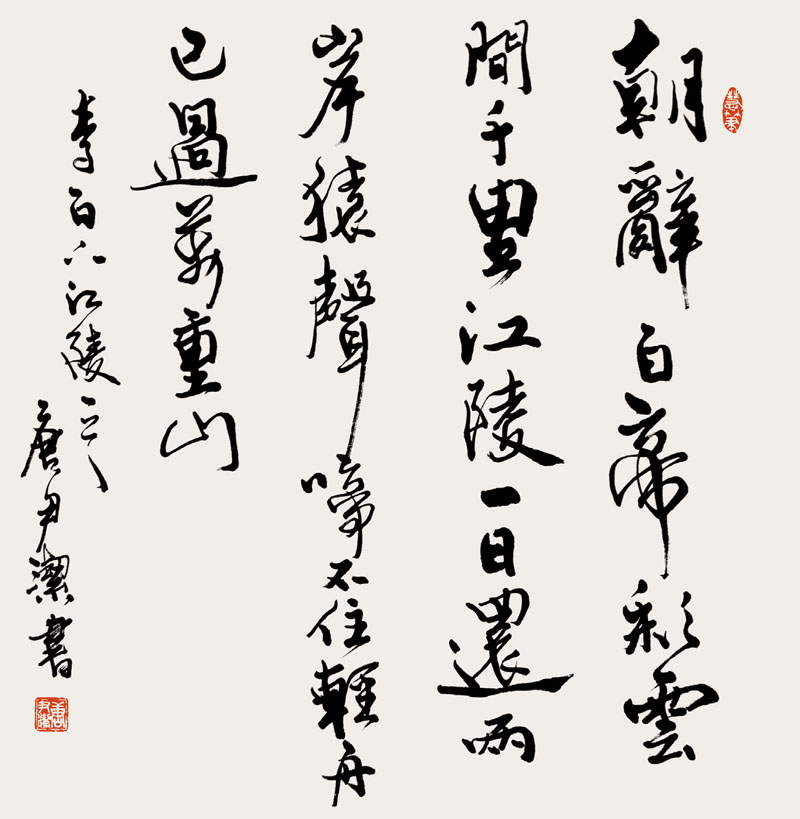 朝辭白帝彩雲
間千里江陵一日還兩
岸猿聲啼不住輕舟
已過萬重山
李白下江陵
唐尹潔書